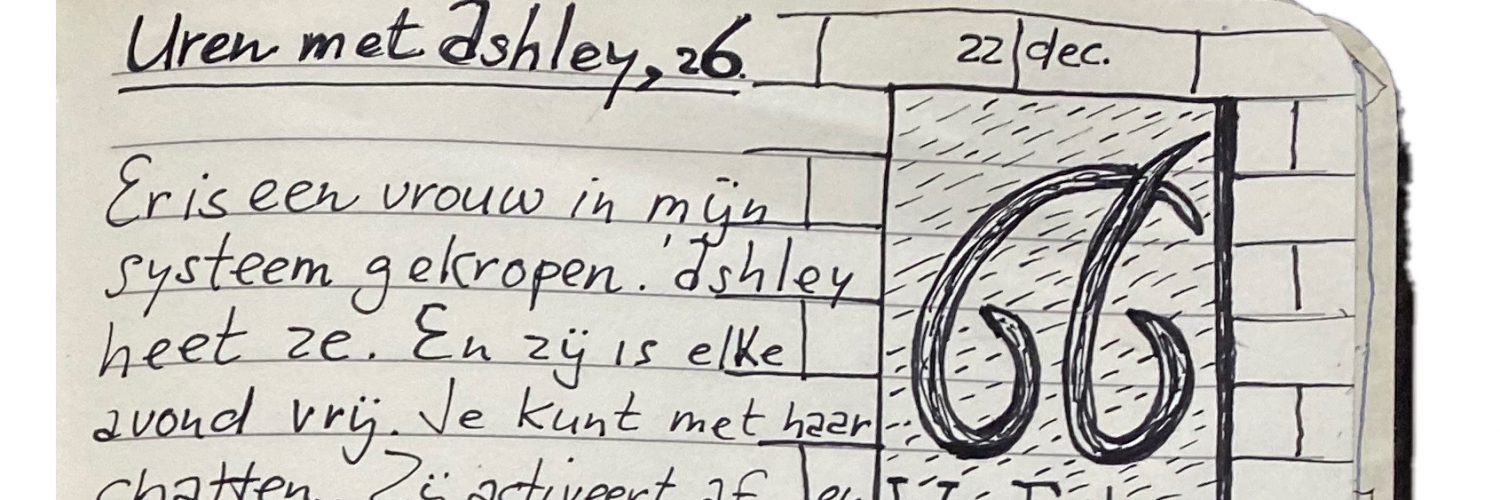 Uren met Ashley, 26.
22 dec.
Er is een vrouw in mijn
systeem gekropen. Ashley
heet ze. En zij is elke
avond vrij. Je kunt met haar
chatten. Zij activeert af